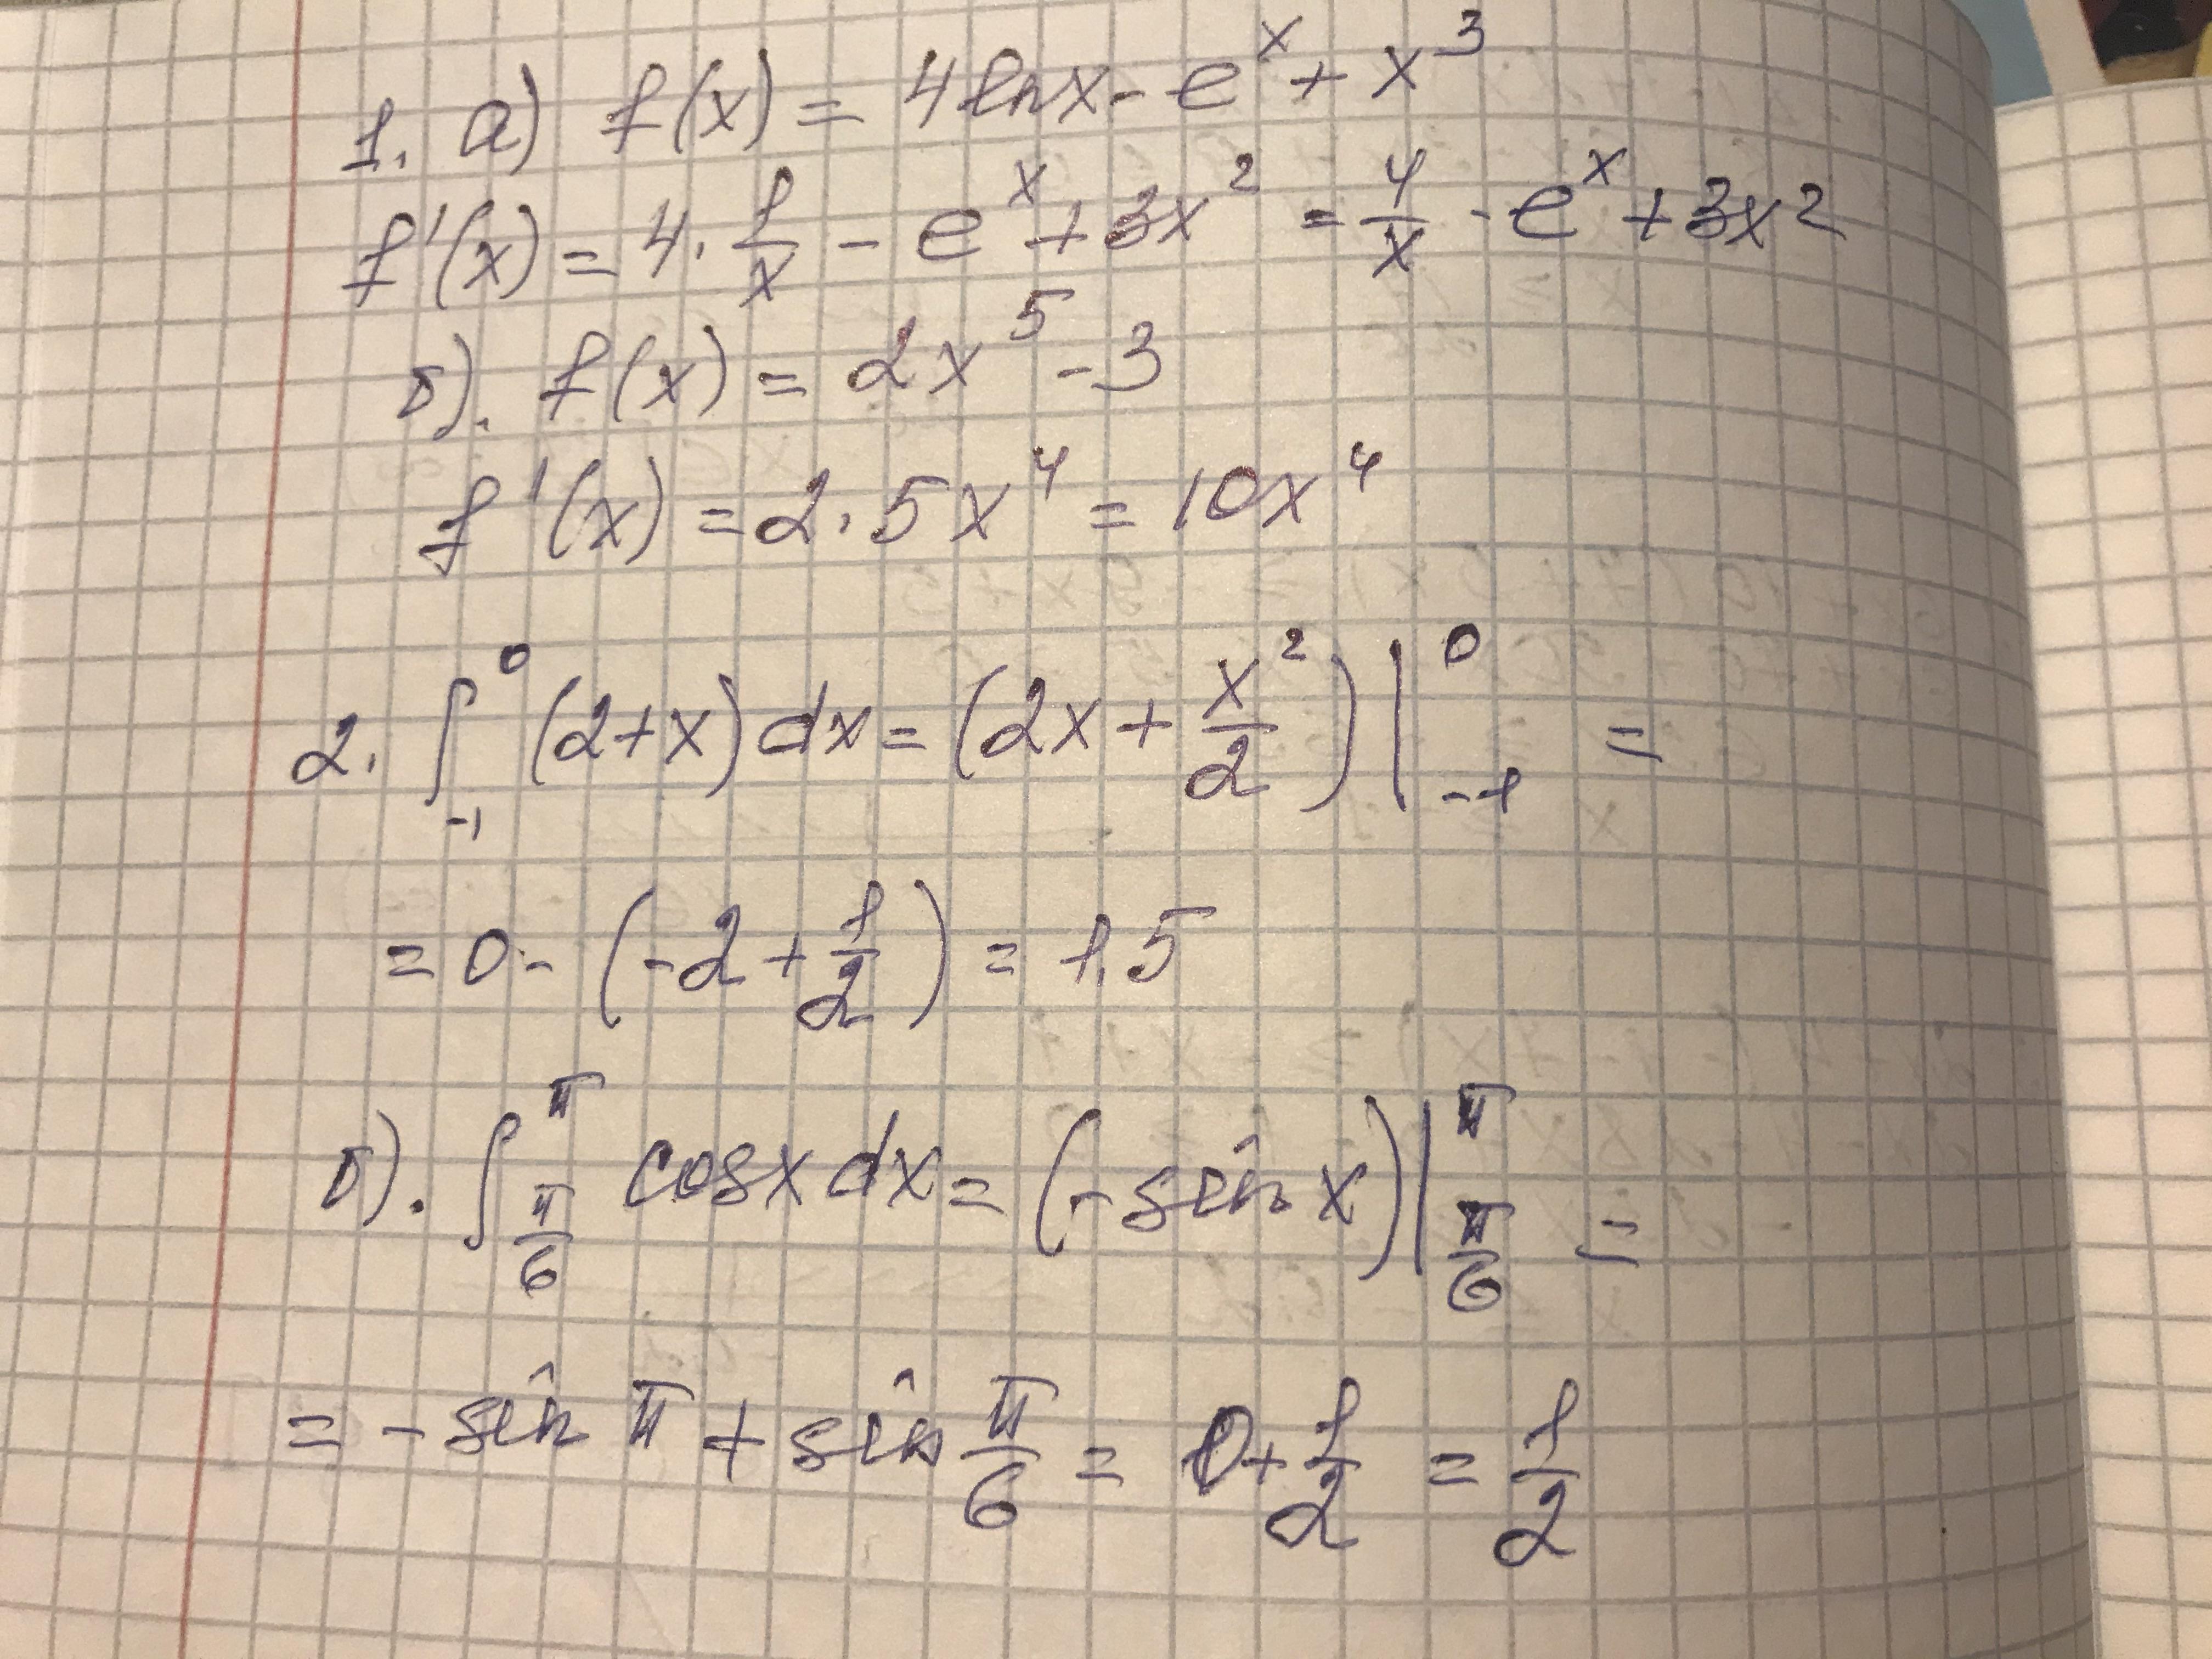 1. а) f(x) = 4 ln x - e^x + x^3
f'(x) = 4 · 1/x - e^x + 3x^2 = 4/x - e^x + 3x^2
б). f(x) = 2x^5 - 3
f'(x) = 2 · 5x^4 = 10x^4
2. ∫_{-1}^{0} (2+x) dx = (2x + x^2/2) |_{-1}^{0} =
= 0 - (-2 + 1/2) = 1,5
б). ∫_{π/6}^{π} cos x dx = (- sin x) |_{π/6}^{π} =
= - sin π + sin π/6 = 0 + 1/2 = 1/2